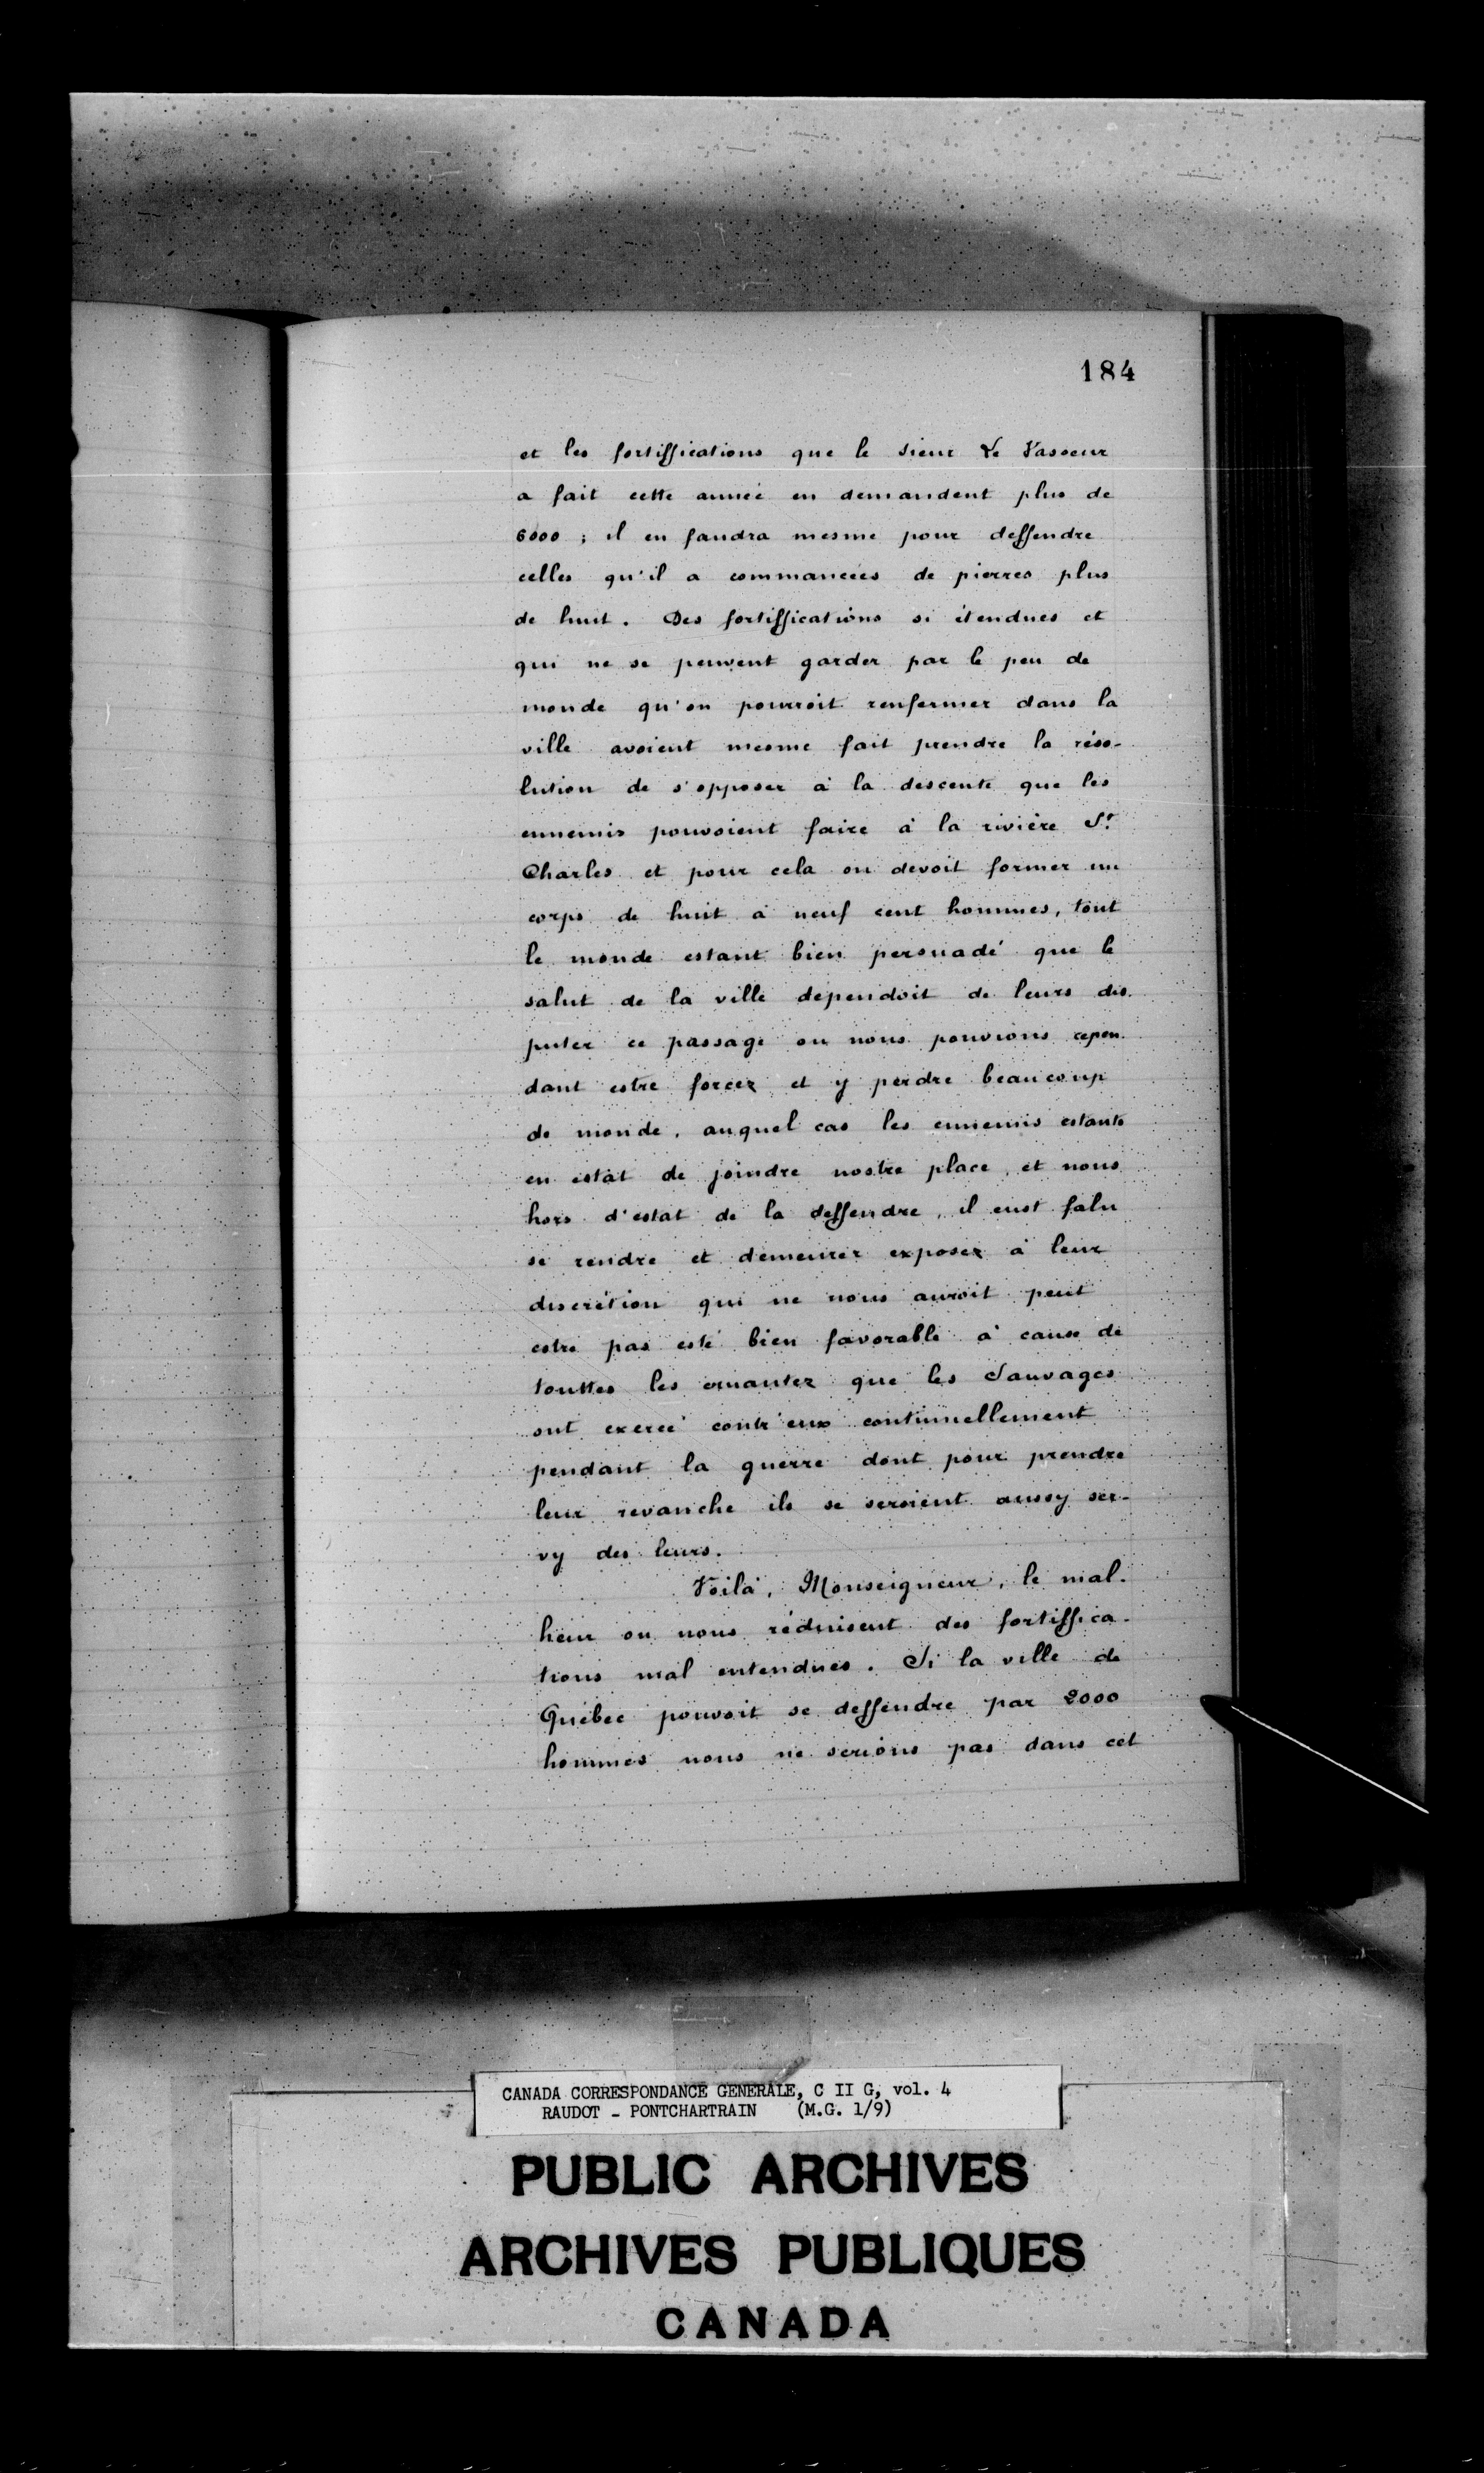 184
et les fortiffications que le sieur Le Vasseur
a fait cette année en demandent plus de
6000 ; il en faudra mesme pour deffendre
celles qu'il a commancées de pierres plus
de huit. Des fortiffications si étendues et
qui ne se peuvent garder par le peu de
monde qu'on pourroit renfermer dans la
ville avoient mesme fait prendre la réso-
lution de s'opposer à la descente que les
ennemis pouvoient faire à la rivière St
Charles et pour cela on devoit former un
corps de huit à neuf cent hommes, tout
le monde estant bien persuadé que le
salut de la ville dependoit de leurs dis-
puter ce passage ou nous pouvions cepen-
dant estre forcez et y perdre beaucoup
de monde, auquel cas les ennemis estants
en estat de joindre nostre place et nous
hors d'estat de la deffendre, il eust falu
se rendre et demeurer exposez à leur
discrétion qui ne nous auroit peut
estre pas esté bien favorable à cause de
touttes les cruautez que les Sauvages
ont exercé contr'eux continuellement
pendant la guerre dont pour prendre
leur revanche ils se seroient aussy ser-
vy des leurs.
Voilà, Monseigneur, le mal-
heur ou nous réduisent des fortiffica-
tions mal entendues. Si la ville de
Québec pouvoit se deffendre par 2000
hommes nous ne serions pas dans cet
CANADA CORRESPONDANCE GENERALE, C II G, vol. 4
RAUDOT - PONTCHARTRAIN (M.G. 1/9)
PUBLIC ARCHIVES
ARCHIVES PUBLIQUES
CANADA